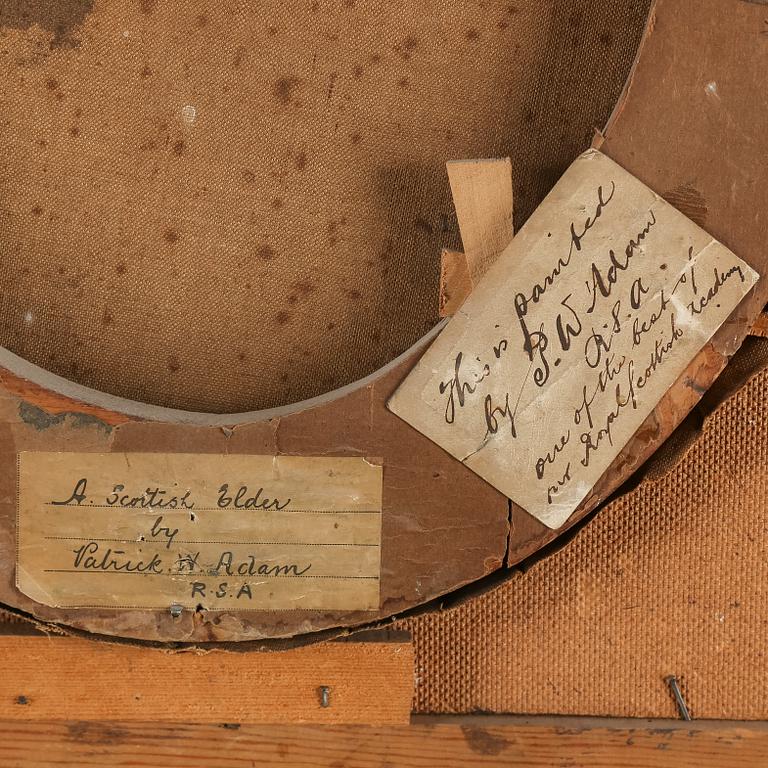 A. Scottish Elder
by
Patrick. W. Adam
R.S.A
This is painted
by P. W Adam
R.S.A
one of the best of
our Royal Scottish Academy